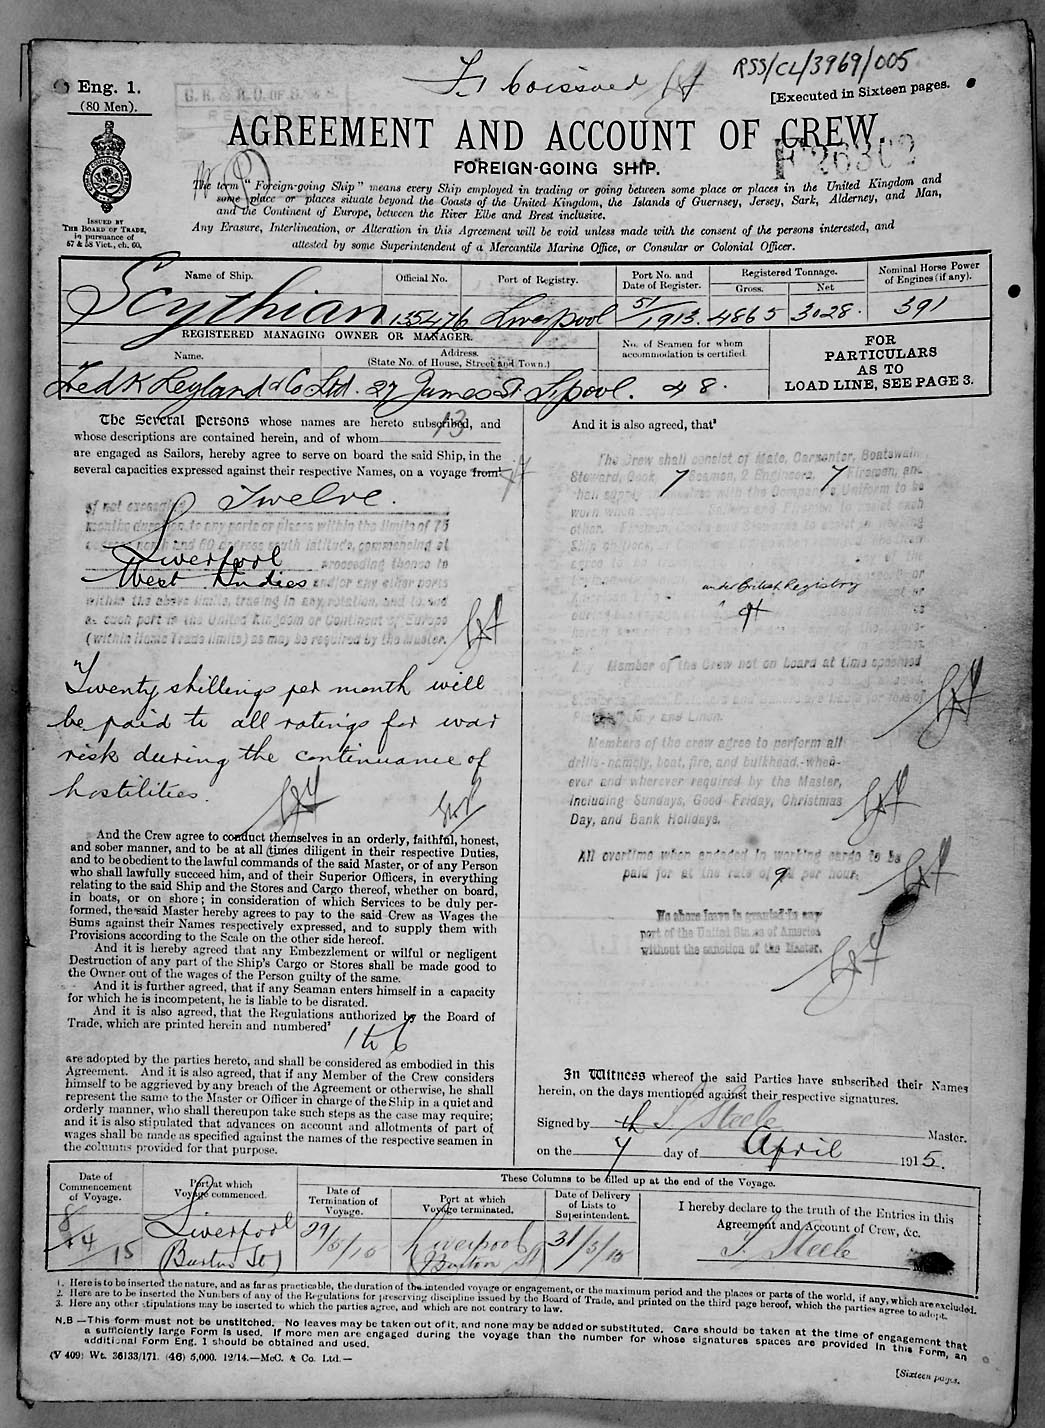 RSS/CL/3969/005
Eng. 1.
(80 Men).
[Executed in Sixteen pages.
AGREEMENT AND ACCOUNT OF CREW.
FOREIGN-GOING SHIP.
The term "Foreign-going Ship" means every Ship employed in trading or going between some place or places in the United Kingdom and
some place or places situate beyond the Coasts of the United Kingdom, the Islands of Guernsey, Jersey, Sark, Alderney, and Man,
and the Continent of Europe, between the River Elbe and Brest inclusive.
Any Erasure, Interlineation, or Alteration in this Agreement will be void unless made with the consent of the persons interested, and
attested by some Superintendent of a Mercantile Marine Office, or Consular or Colonial Officer.
ISSUED BY
THE BOARD OF TRADE,
in pursuance of
57 & 58 Vict., ch. 60.
Name of Ship. Official No. Port of Registry. Port No. and Date of Register. Registered Tonnage. Gross. Net Nominal Horse Power of Engines (if any).
Scythian 135476 Liverpool 51/1913. 4865 3028. 391
REGISTERED MANAGING OWNER OR MANAGER.
Name. Address. (State No. of House, Street and Town.) No. of Seamen for whom accommodation is certified.
Fredk Leyland & Co Ltd. 27 James St L'pool. 48.
FOR
PARTICULARS
AS TO
LOAD LINE, SEE PAGE 3.
The Several Persons whose names are hereto subscribed, and
whose descriptions are contained herein, and of whom 13
are engaged as Sailors, hereby agree to serve on board the said Ship, in the
several capacities expressed against their respective Names, on a voyage from¹
of not exceeding Twelve.
months duration, to any ports or places within the limits of 75
degrees north and 60 degrees south latitude, commencing at
Liverpool proceeding thence to
West Indies and/or any other ports
within the above limits, trading in any rotation, and to end
at such port in the United Kingdom or Continent of Europe
(within Home Trade limits) as may be required by the Master.
Twenty shillings per month will
be paid to all ratings for war
risk during the continuance of
hostilities.
And the Crew agree to conduct themselves in an orderly, faithful, honest,
and sober manner, and to be at all times diligent in their respective Duties,
and to be obedient to the lawful commands of the said Master, or of any Person
who shall lawfully succeed him, and of their Superior Officers, in everything
relating to the said Ship and the Stores and Cargo thereof, whether on board,
in boats, or on shore; in consideration of which Services to be duly per-
formed, the said Master hereby agrees to pay to the said Crew as Wages the
Sums against their Names respectively expressed, and to supply them with
Provisions according to the Scale on the other side hereof.
And it is hereby agreed that any Embezzlement or wilful or negligent
Destruction of any part of the Ship's Cargo or Stores shall be made good to
the Owner out of the wages of the Person guilty of the same.
And it is further agreed, that if any Seaman enters himself in a capacity
for which he is incompetent, he is liable to be disrated.
And it is also agreed, that the Regulations authorized by the Board of
Trade, which are printed herein and numbered²
1 to 6
are adopted by the parties hereto, and shall be considered as embodied in this
Agreement. And it is also agreed, that if any Member of the Crew considers
himself to be aggrieved by any breach of the Agreement or otherwise, he shall
represent the same to the Master or Officer in charge of the Ship in a quiet and
orderly manner, who shall thereupon take such steps as the case may require;
and it is also stipulated that advances on account and allotments of part of
wages shall be made as specified against the names of the respective seamen in
the columns provided for that purpose.
And it is also agreed, that³
The Crew shall consist of Mate, Carpenter, Boatswain
Steward, Cook, 7 Seamen, 2 Engineers, 7 Firemen, and
under British Registry
Any Member of the Crew not on board at time specified
Members of the crew agree to perform all
drills-namely, boat, fire, and bulkhead,-when-
ever and wherever required by the Master,
including Sundays, Good Friday, Christmas
Day, and Bank Holidays.
All overtime when engaged in working cargo to be
paid for at the rate of 9d per hour.
No shore leave is granted in any
port of the United States of America
without the sanction of the Master.
In Witness whereof the said Parties have subscribed their Names
herein, on the days mentioned against their respective signatures.
Signed by Steele Master.
on the 7 day of April 1915.
These Columns to be filled up at the end of the Voyage.
Date of Commencement of Voyage. Port at which Voyage commenced. Date of Termination of Voyage. Port at which Voyage terminated. Date of Delivery of Lists to Superintendent.
I hereby declare to the truth of the Entries in this
Agreement and Account of Crew, &c.
8/4/15 Liverpool 29/5/15 Liverpool 31/5/15 Steele
1. Here is to be inserted the nature, and as far as practicable, the duration of the intended voyage or engagement, or the maximum period and the places or parts of the world, if any, which are excluded.
2. Here are to be inserted the Numbers of any of the Regulations for preserving discipline issued by the Board of Trade, and printed on the third page hereof, which the parties agree to adopt.
3. Here any other stipulations may be inserted to which the parties agree, and which are not contrary to law.
N.B—This form must not be unstitched. No leaves may be taken out of it, and none may be added or substituted. Care should be taken at the time of engagement that
a sufficiently large Form is used. If more men are engaged during the voyage than the number for whose signatures spaces are provided in this Form, an
additional Form Eng. 1 should be obtained and used.
(V 409) Wt. 36133/171. (46) 5,000. 12/14.—McC. & Co. Ltd.—
[Sixteen pages.